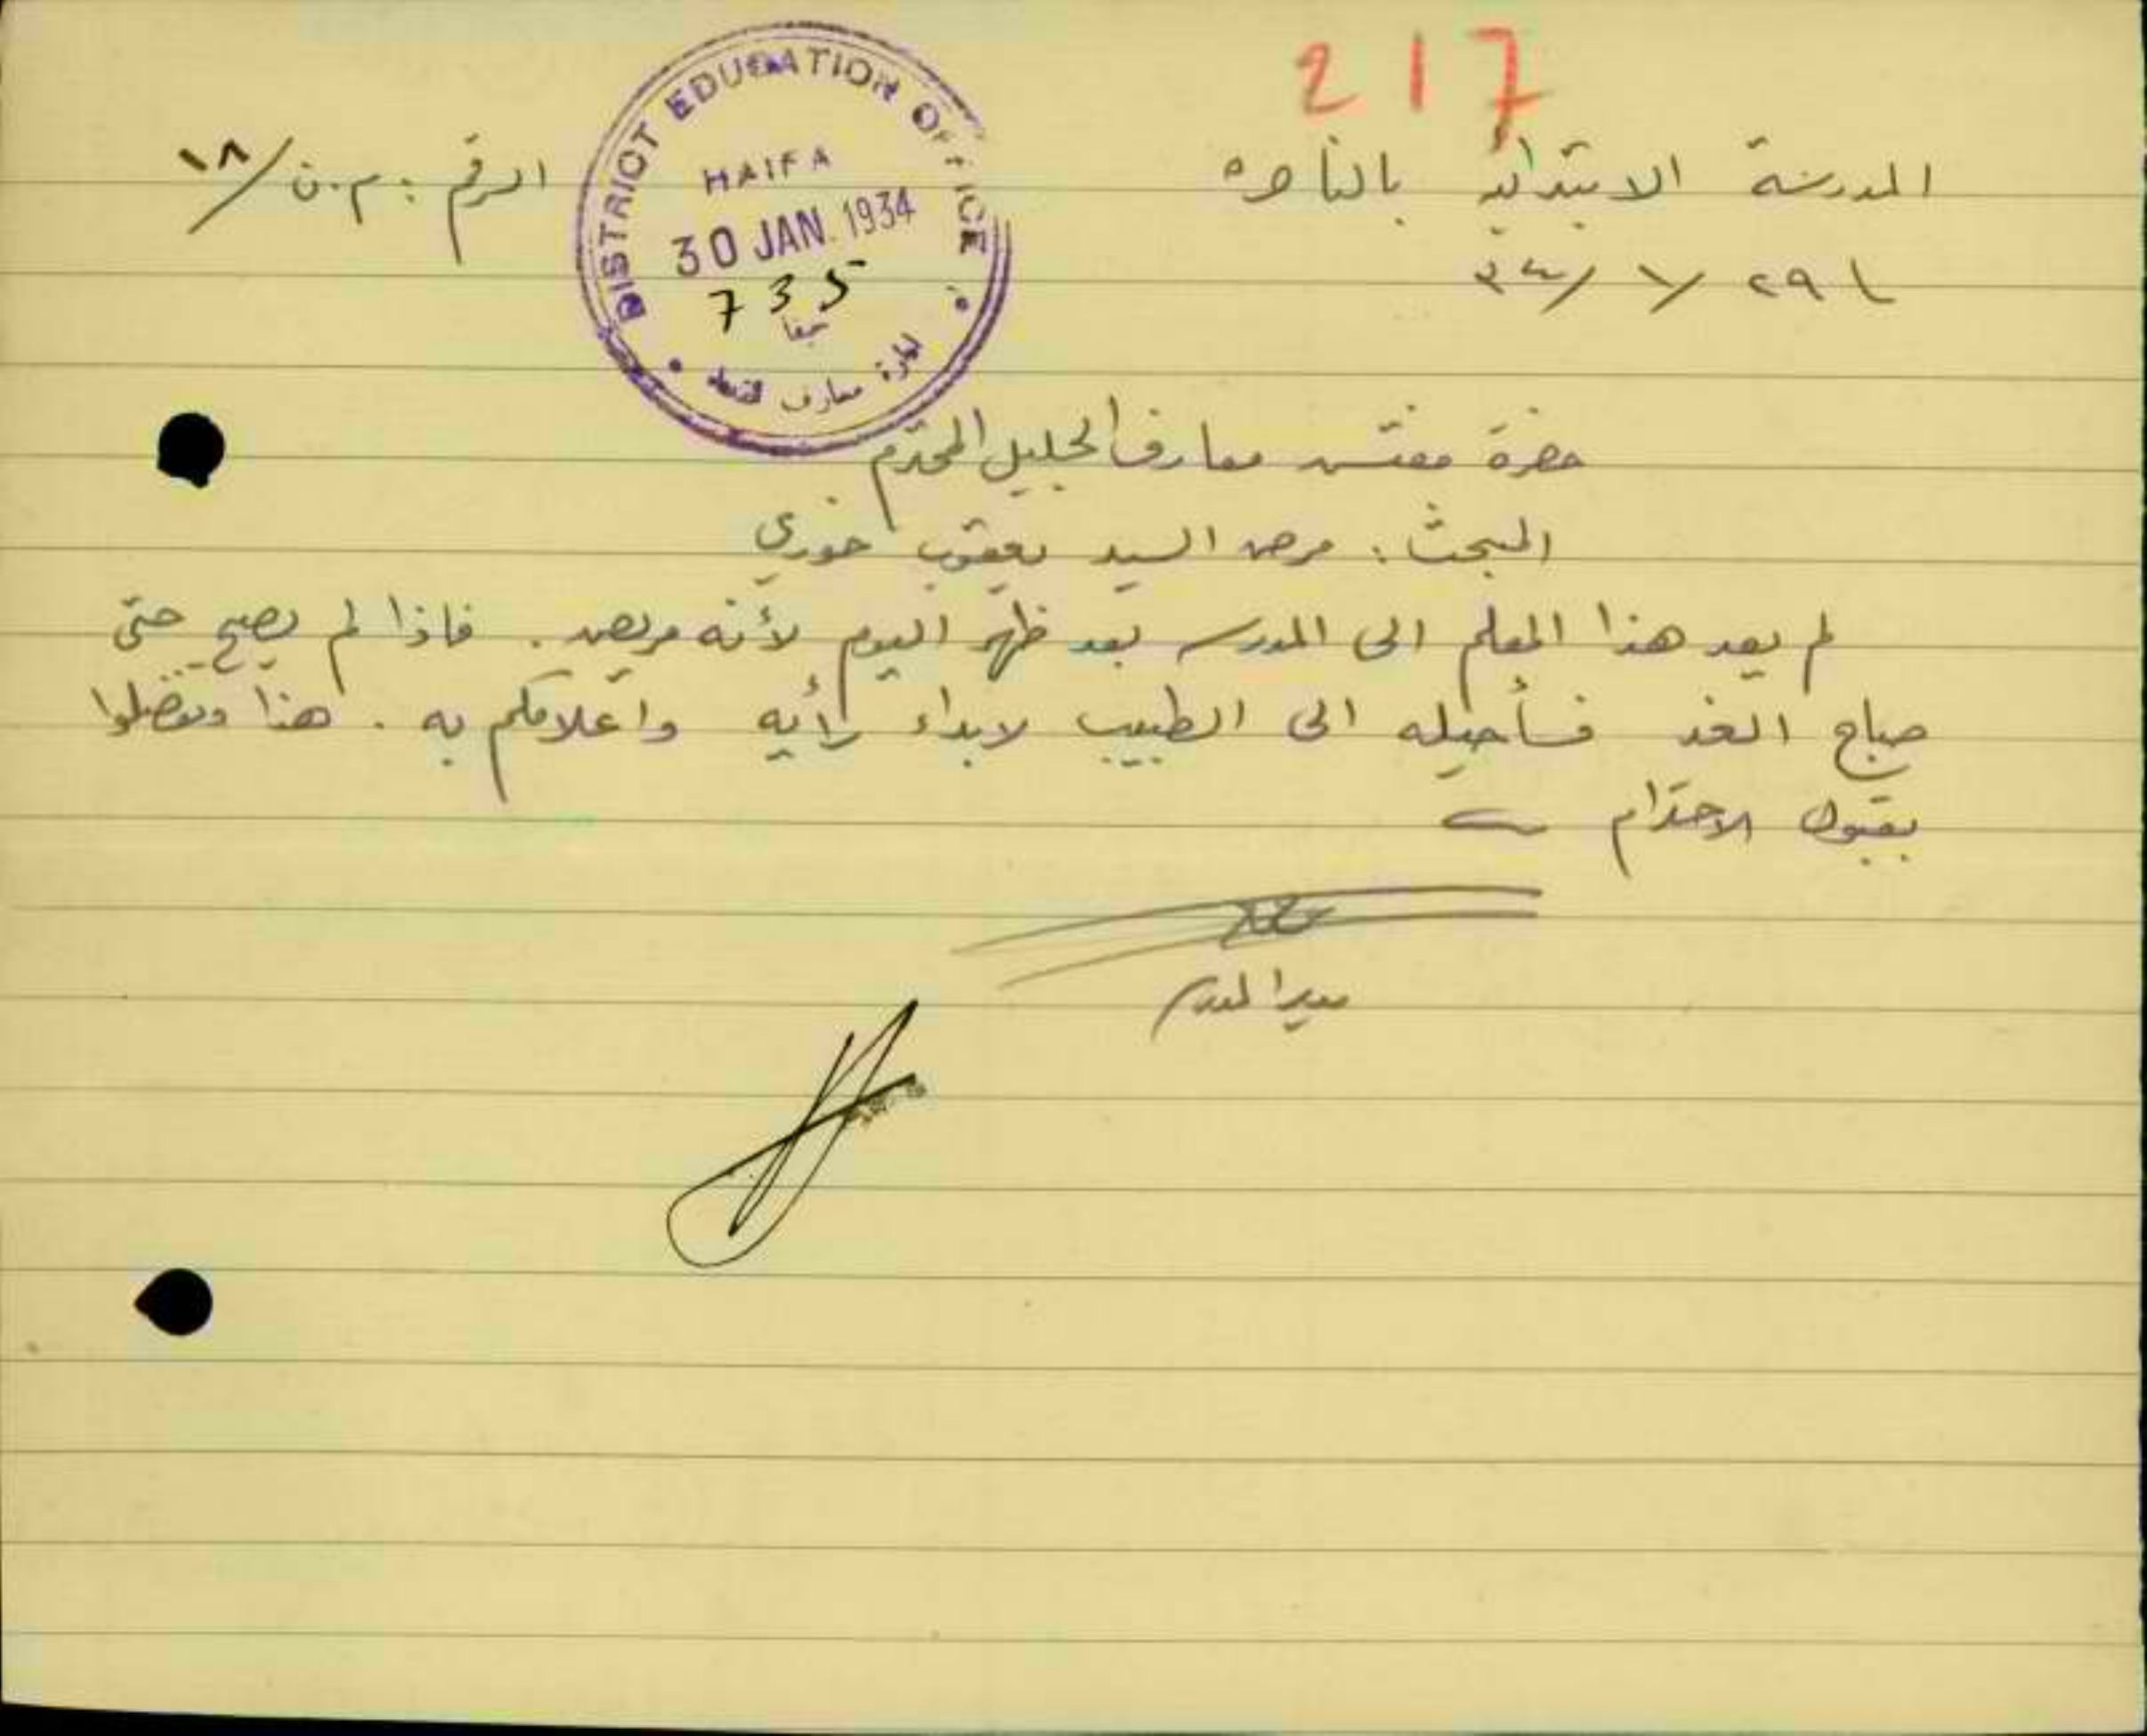 217
المدرسة الابتدائية بالناصره
الرقم : م.ن/١٨
٢٩/١/٣٤
DISTRICT EDUCATION OFFICE
HAIFA
30 JAN. 1934
735
حيفا
ادارة معارف
حضرة مفتش معارف الجليل المحترم
المبحث : مرض السيد يعقوب خوري
لم يعد هذا المعلم الى المدرسة بعد ظهر اليوم لأنه مريض . فاذا لم يصح حتى
صباح الغد فسأحيله الى الطبيب لابداء رأيه واعلامكم به . هذا وتفضلوا
بقبول الاحترام
مدير المدرسة